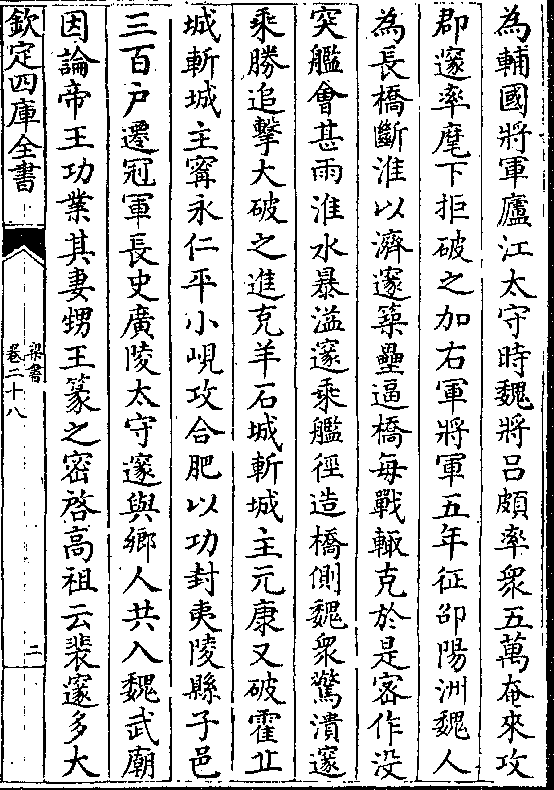 為輔國將軍廬江太守時魏將吕頗率衆五萬奄來攻
郡邃率麾下拒破之加右軍將軍五年征邵陽洲魏人
為長橋斷淮以濟邃築壘逼橋每戰輙克於是宻作没
突艦會甚雨淮水暴溢邃乘艦徑造橋側魏衆驚潰邃
乘勝追撃大破之進克羊石城斬城主元康又破霍丘
城斬城主甯永仁平小峴攻合肥以功封夷陵縣子邑
三百户遷冠軍長史廣陵太守邃與鄉人共入魏武廟
因論帝王功業其妻甥王篆之密啓高祖云裴邃多大
欽定四庫全書
梁書
卷二十八
二